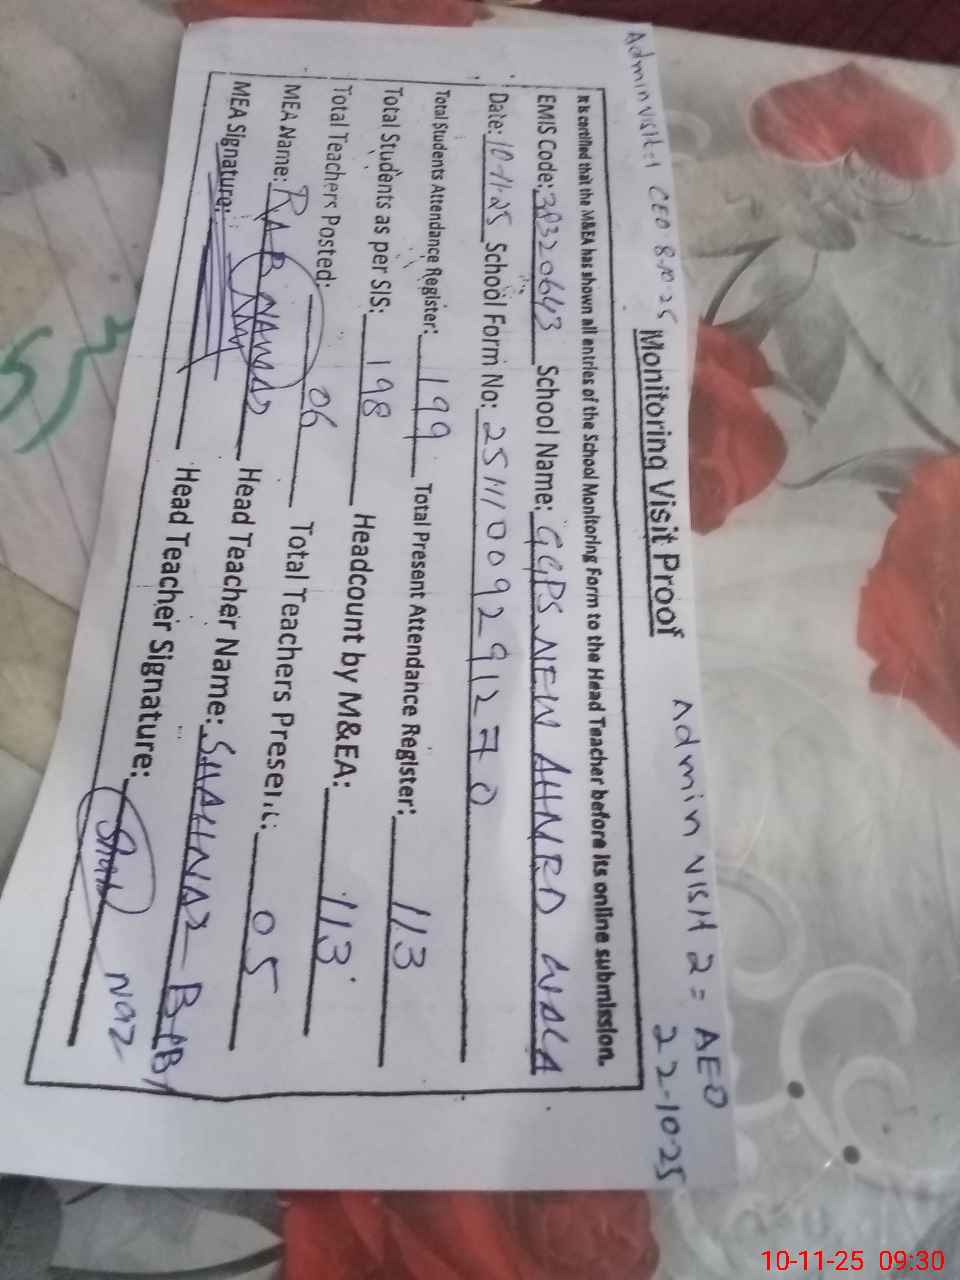 Admin visit=1 CEO 8-10-25 Admin visit 2 = AEO 22-10-25
Monitoring Visit Proof
It is certified that the M&EA has shown all entries of the School Monitoring Form to the Head Teacher before its online submission.
EMIS Code: 38320643 School Name: GGPS NEW AHMRD WALA
Date: 10-11-25 School Form No: 25111009291270
Total Students Attendance Register: 199 Total Present Attendance Register: 113
Total Students as per SIS: 198 Headcount by M&EA: 113
Total Teachers Posted: 06 Total Teachers Present: 05
MEA Name: RAB NAWAZ Head Teacher Name: SHAHNAZ BIBI
MEA Signature: Head Teacher Signature: Shah naz
10-11-25 09:30